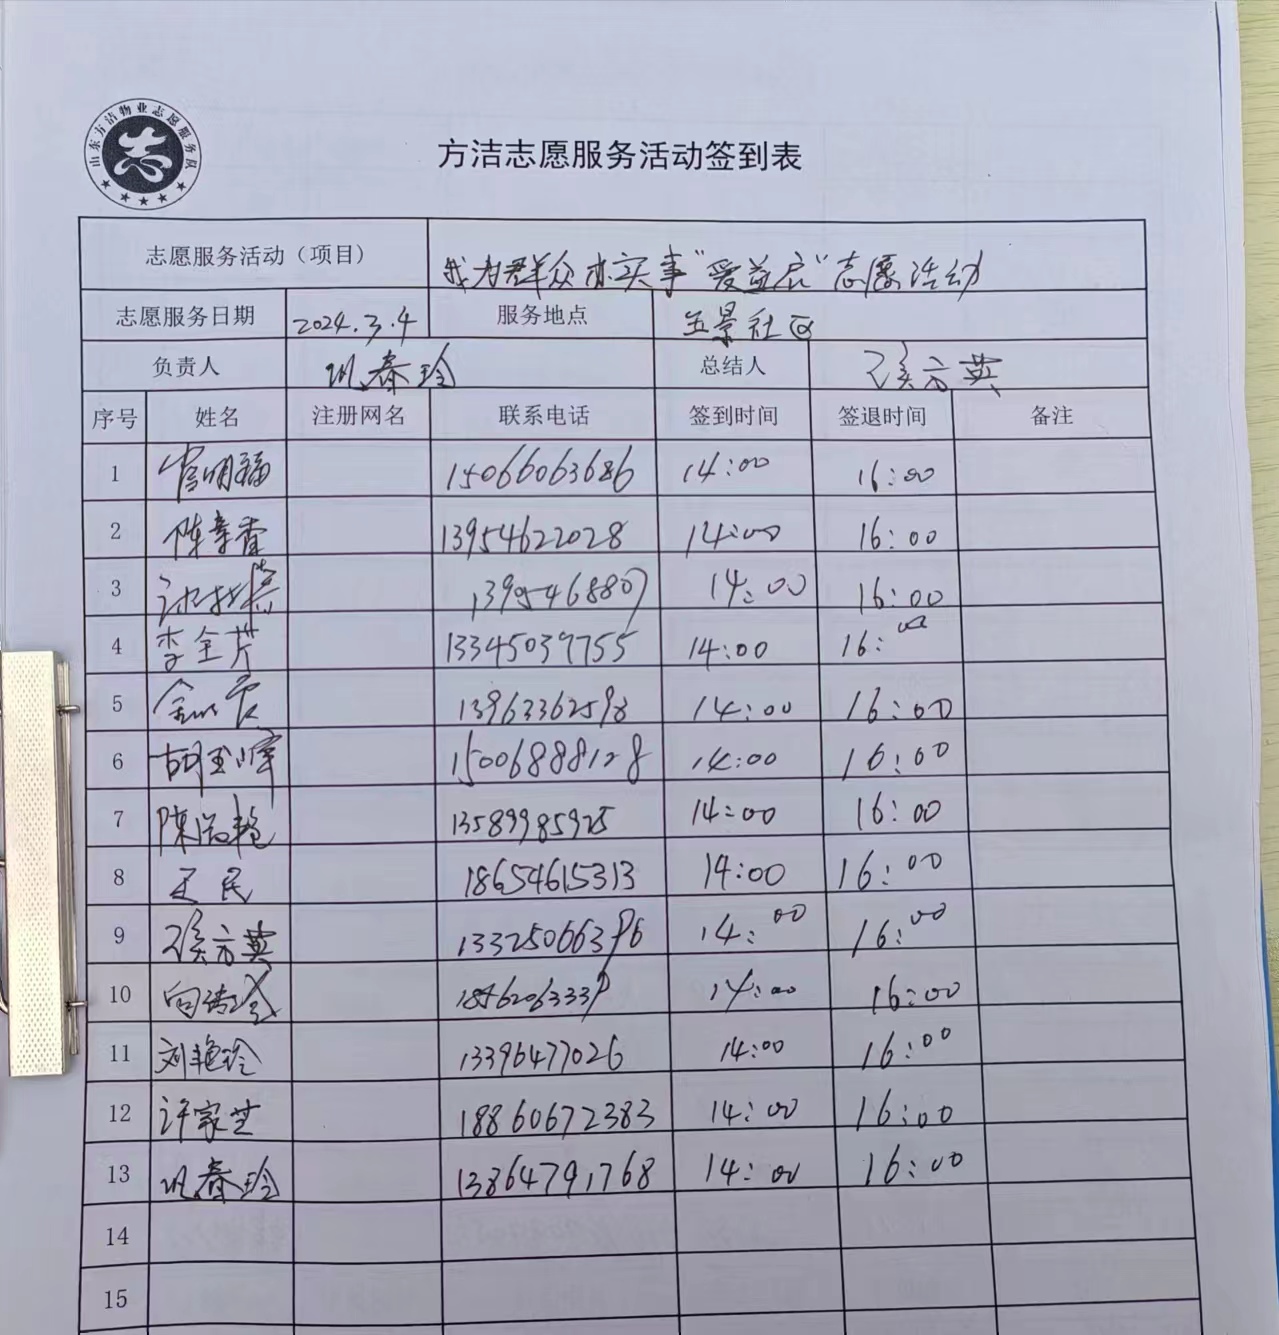 山东方洁物业志愿服务队
志
方洁志愿服务活动签到表
志愿服务活动（项目） 我为群众办实事"爱益启"志愿活动
志愿服务日期 2024.3.4 服务地点 五景社区
负责人 巩春玲 总结人 侯方英
序号 姓名 注册网名 联系电话 签到时间 签退时间 备注
1 15066063686 14:00 16:00
2 13954622028 14:00 16:00
3 14:00 16:00
4 李金芹 13345039755 14:00 16:00
5 13963362598 14:00 16:00
6 胡玉峰 15006888128 14:00 16:00
7 13589985925 14:00 16:00
8 王民 18654615313 14:00 16:00
9 侯方英 13325066396 14:00 16:00
10 14:00 16:00
11 刘艳玲 13396477026 14:00 16:00
12 许家芝 18860672383 14:00 16:00
13 巩春玲 13864791768 14:00 16:00
14
15